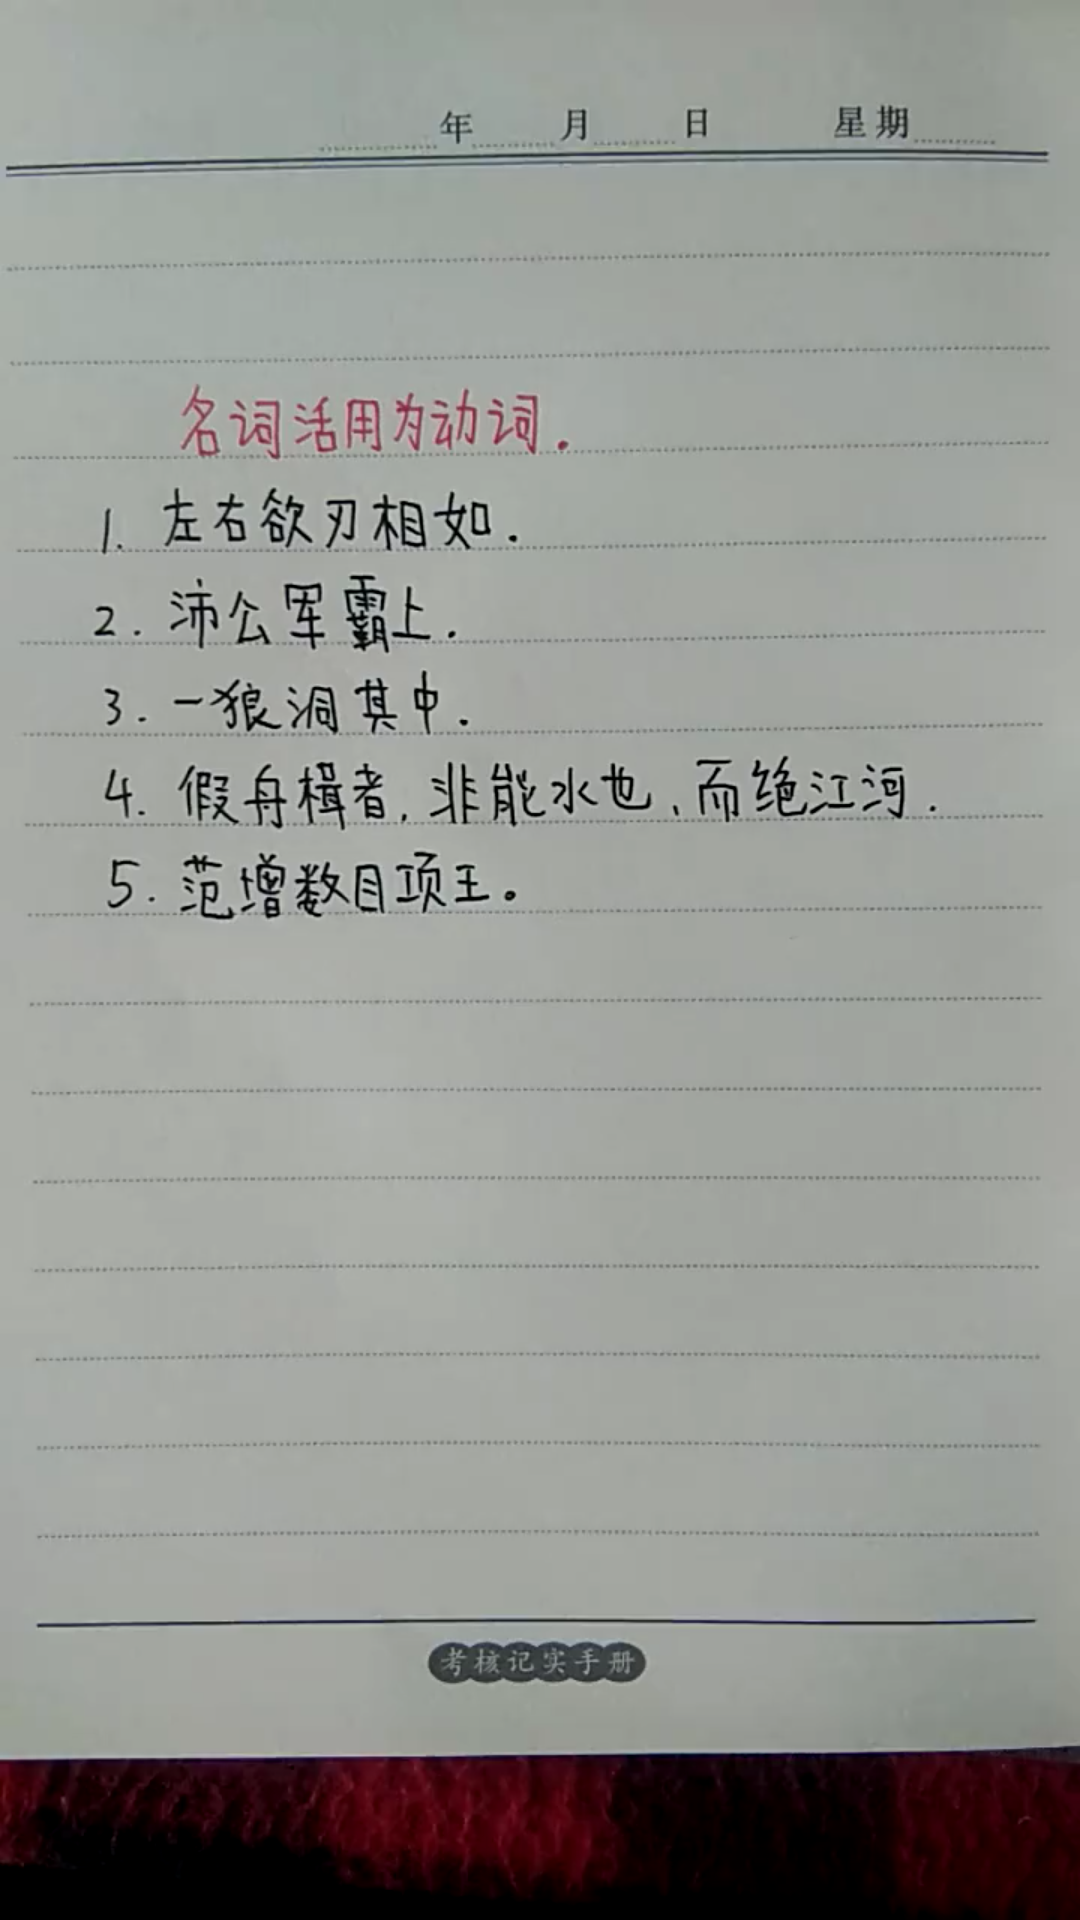 年 月 日 星期
名词活用为动词.
1. 左右欲刃相如.
2. 沛公军霸上.
3. 一狼洞其中.
4. 假舟楫者, 非能水也、而绝江河.
5. 范增数目项王。
考核记实手册